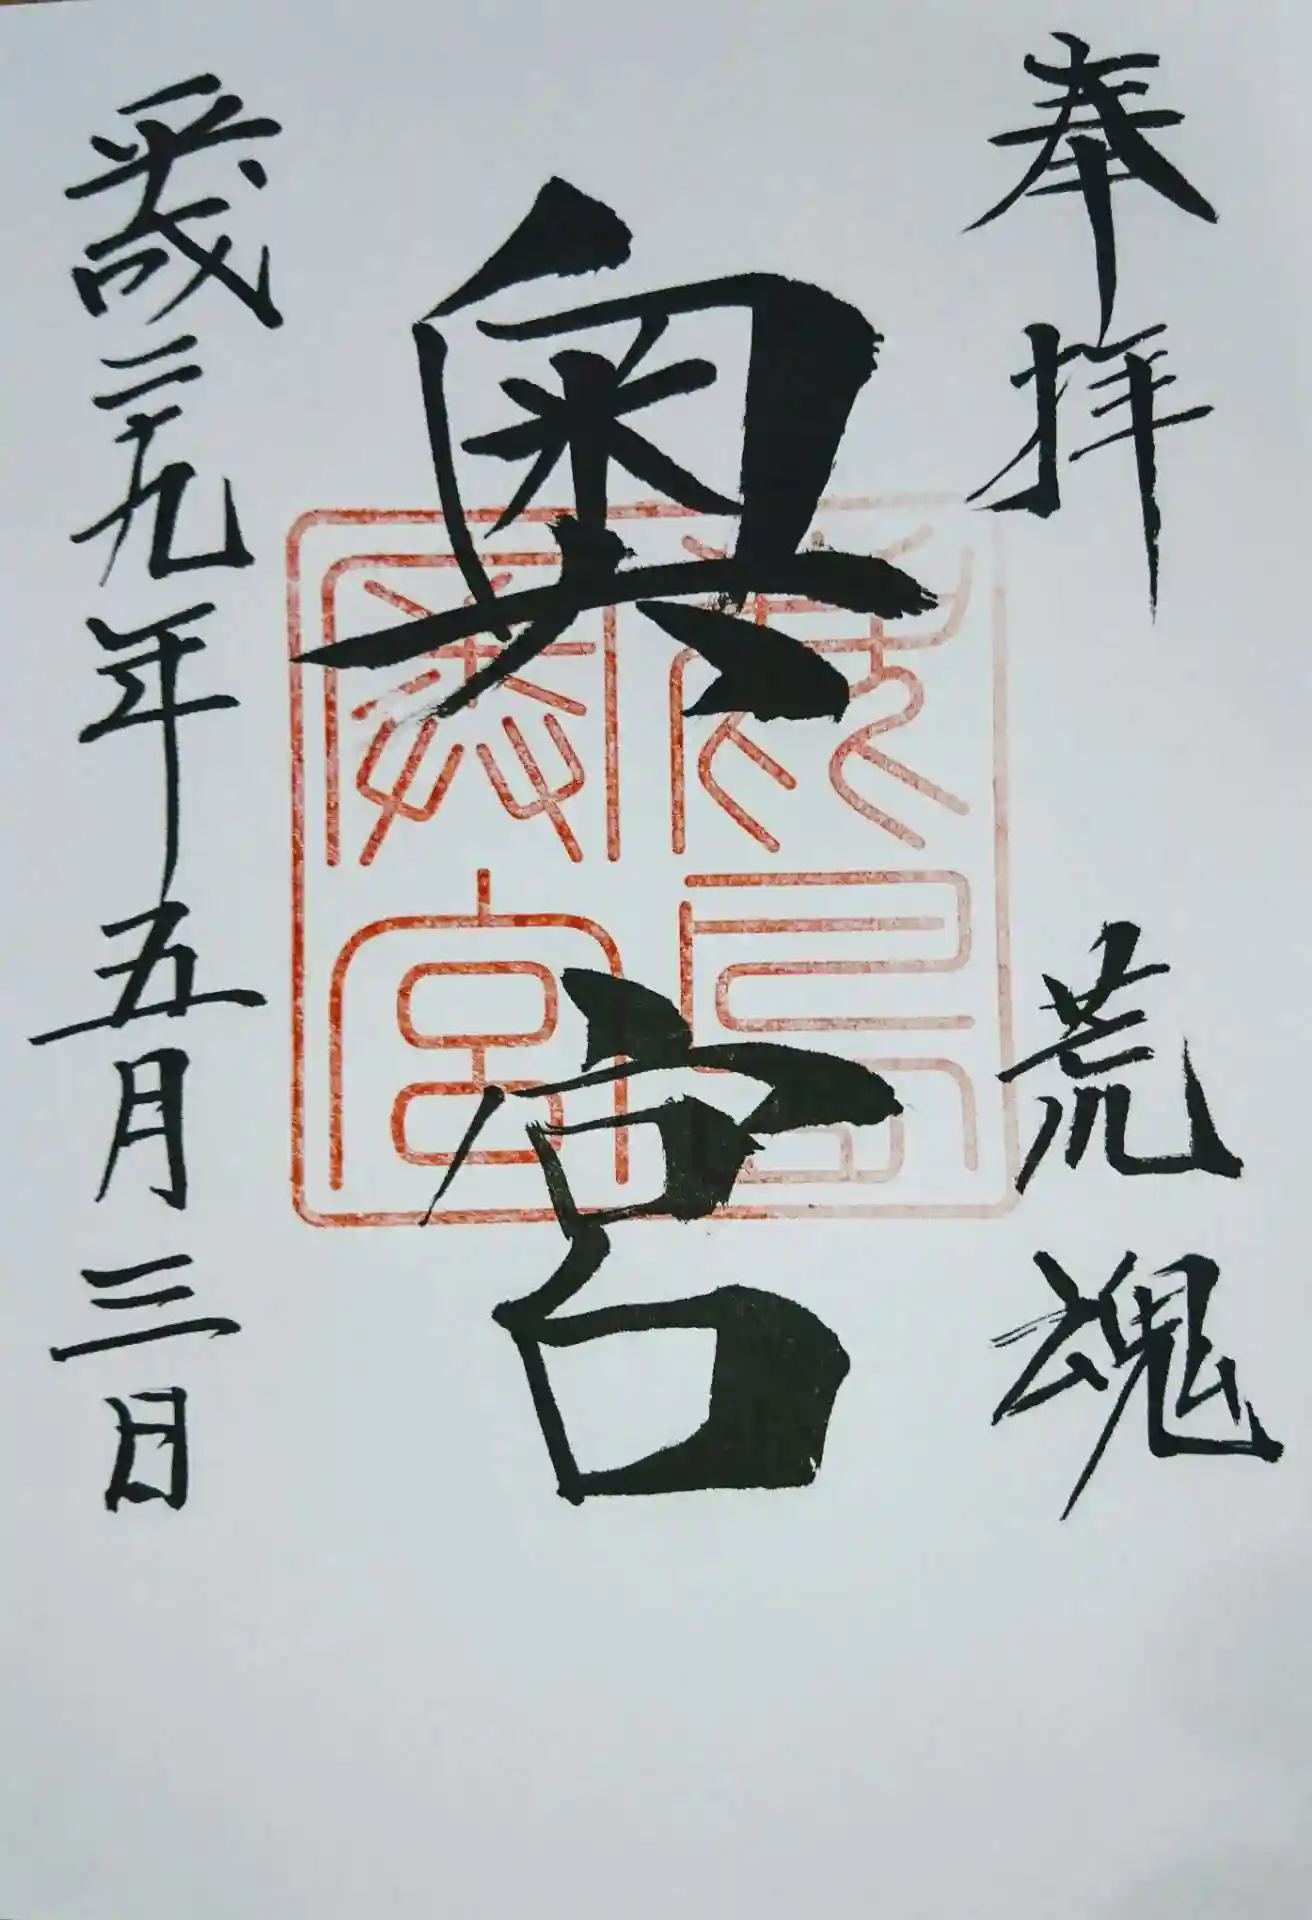 奉拝　荒魂
奥宮
鹿島奥宮
平成二十九年五月三日